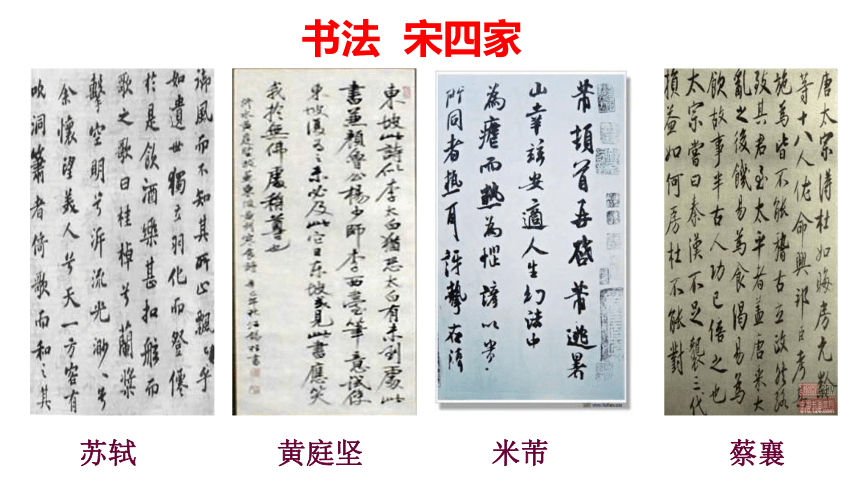 书法 宋四家
御風而不知其所止飄〻乎
如遺世獨立羽化而登僊
於是飲酒樂甚扣舷而
歌之歌曰桂棹兮蘭槳
擊空明兮泝流光渺〻兮
余懷望美人兮天一方客有
吹洞簫者倚歌而和之其
東坡此詩似李太白猶恐太白有未到處此
書兼顏魯公楊少師李西臺筆意試使
東坡復為之未必及此它日東坡或見此書應笑
我於無佛處稱尊也
芾頓首再啓芾逃暑
山幸兹安適人生幻法中
為虐而熱為惱諺以貴
所同者熱耳訝挚在清
唐太宗得杜如晦房元齡
等十八人佐命興邦
施為皆不能稽古立政
致其君至太平者蓋唐承大
亂之後饑易為食渴易為
飲故事半古人功已倍之也
太宗嘗曰秦漢不足襲三代
損益如何房杜不能對
苏轼
黄庭坚
米芾
蔡襄